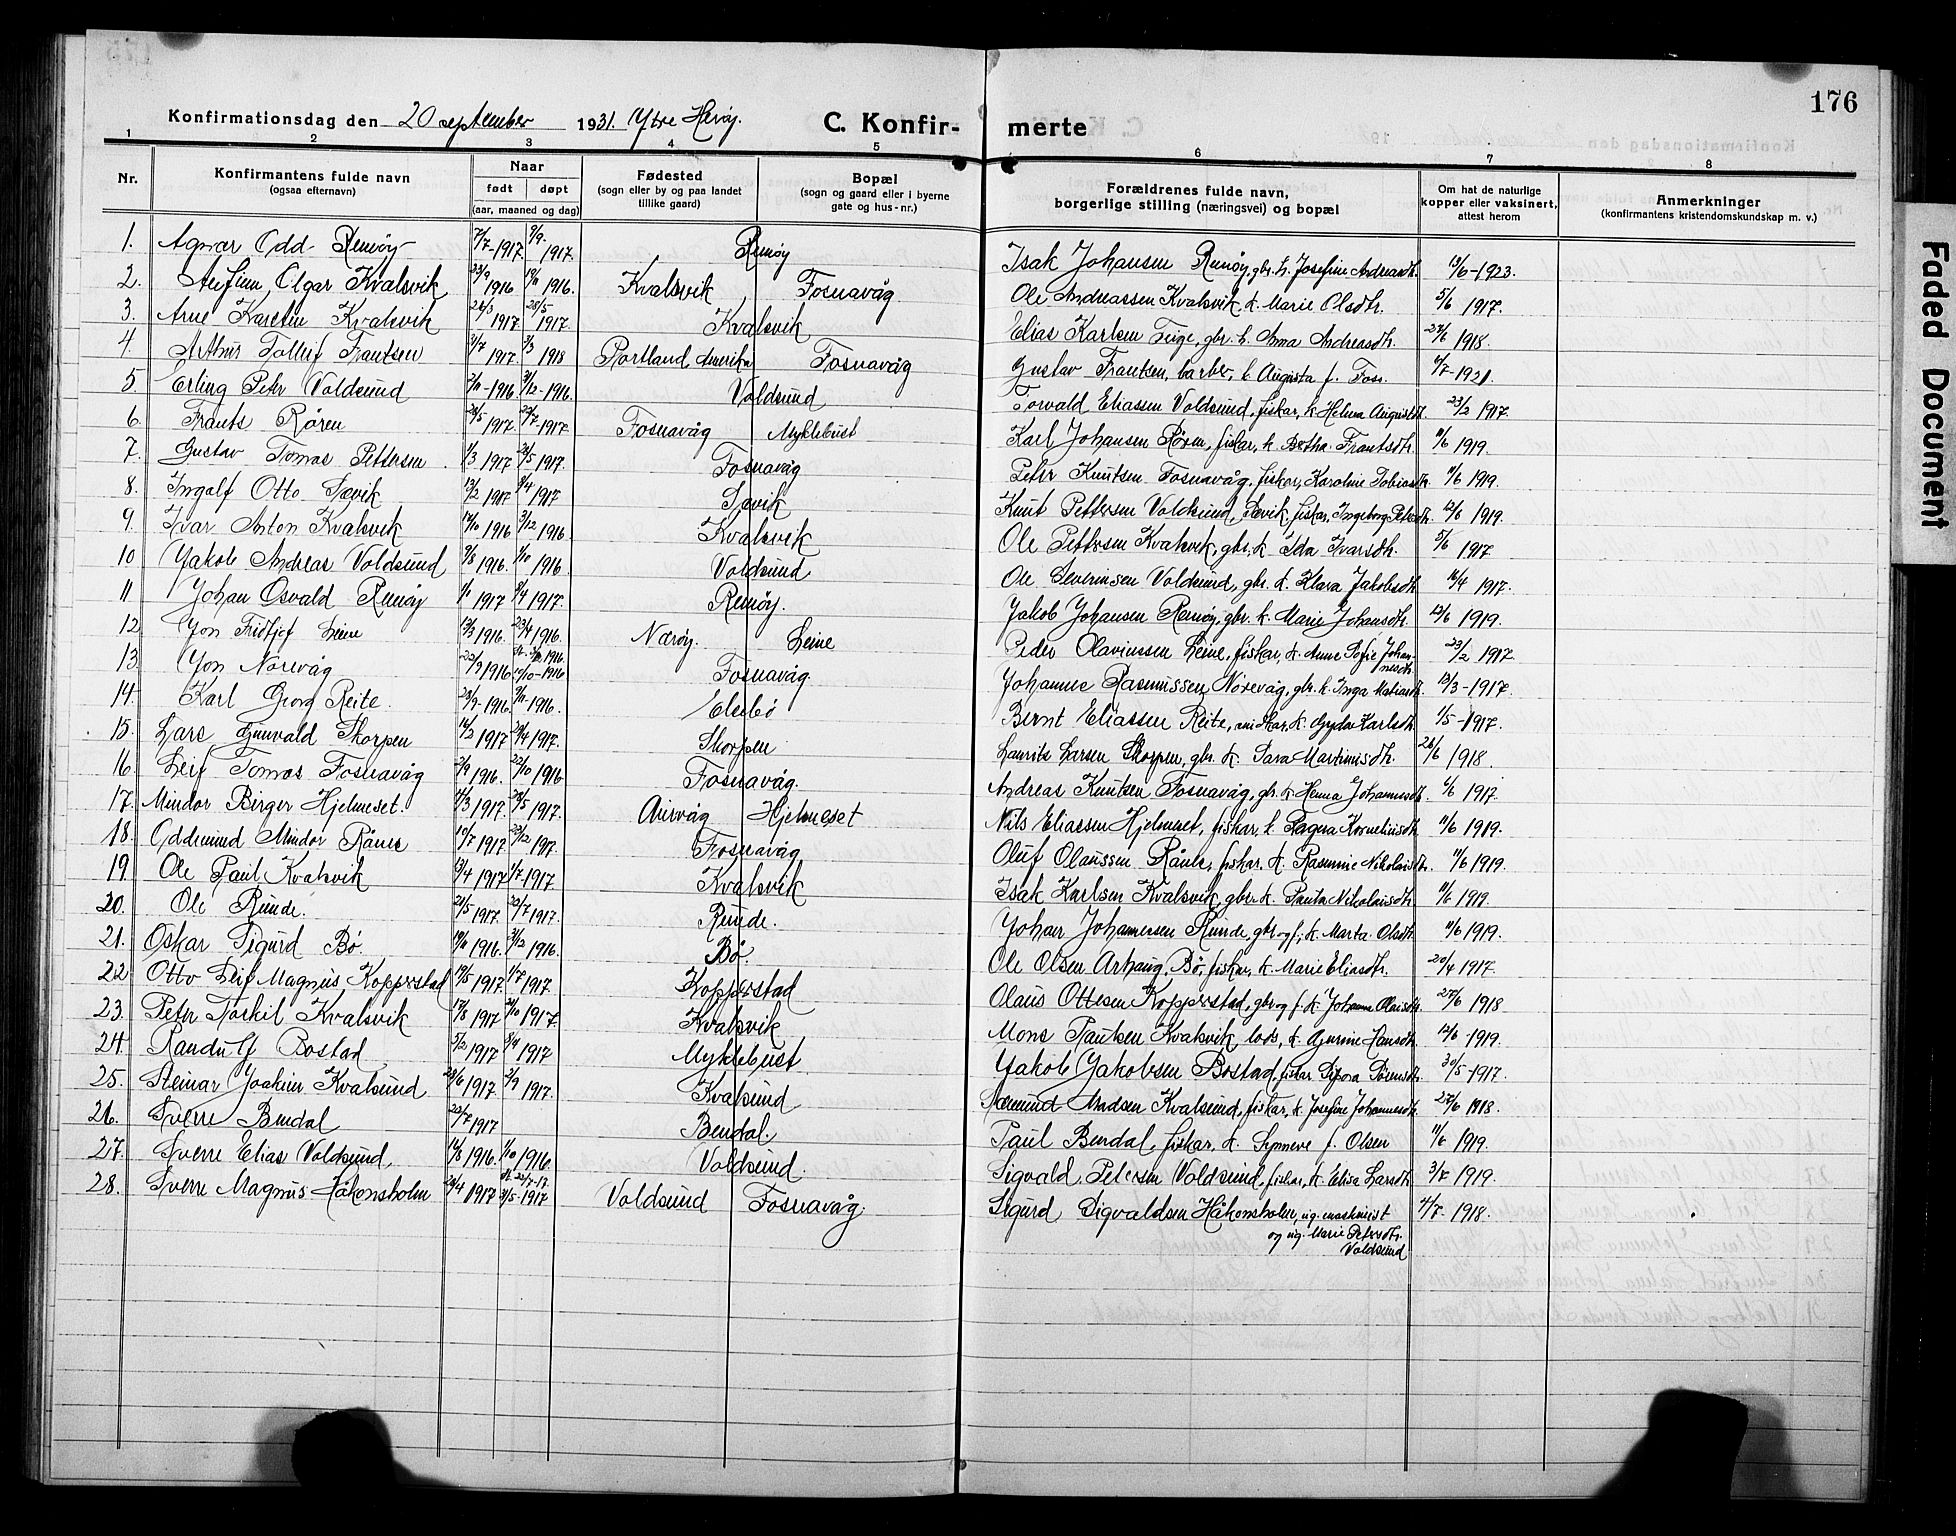 176
Konfirmationsdag den 20 september 1931. Ytre Herøy. C. Konfir- merte
1 2 3 4 5 6 7 8
Nr. Konfirmantens fulde navn (ogsaa efternavn) Naar født døpt (aar, maaned og dag) Fødested (sogn eller by og paa landet tillike gaard) Bopæl (sogn og gaard eller i byerne gate og hus-nr.) Forældrenes fulde navn, borgerlige stilling (næringsvei) og bopæl Om hat de naturlige kopper eller vaksinert, attest herom Anmerkninger (konfirmantens kristendomskundskap m. v.)
1. Agnar Odd Remøy 7/7-1917. 9/9-1917. Remøy Isak Johansen Remøy, gbr. k. Josefine Andreasdtr. 13/6-1923.
2. Olgar Kvalsvik 23/9 1916 19/11 1916. Kvalsvik Fosnavåg Ole Andreassen Kvalsvik, k. Marie Olsdtr. 5/6 1917.
3. Arne Karsten Kvalsvik 26/3 1917. 28/5 1917. Kvalsvik Elias Karlsen gbr. k. Anna Andreasdtr. 27/6 1918.
4. Arthur Tollef Frantsen 2/7 1917. 3/3 1918 Portland Amerika Fosnavåg Gustav Frantsen, barber, k. Augusta f. 6/7-1921.
5. Erling Peter Voldsund 2/11-1916 31/12-1916. Voldsund Torvald Eliassen Voldsund, fiskar, k. Helma Augustdtr. 23/2 1917.
6. Frants Røren 28/5-1917. 22/7-1917. Fosnavåg Myklebust Karl Johansen Røren, fiskar, k. Bertha Frantsdtr. 11/6 1919.
7. Gustav Tomas Pettersen. 1/3 1917 28/5 1917. Fosnavåg Peter Knutsen Fosnavåg, fiskar, Karoline Tobiasdtr. 11/6 1919.
8. Ingolf Otto Sævik 13/2 1917 9/4 1917 Sævik Knut Pettersen Voldsund, Sævik, fiskar, Ingeborg Petersdtr. 12/6 1919.
9. Ivar Anton Kvalsvik 14/10 1916 3/12 1916. Kvalsvik Ole Pettersen Kvalsvik, gbr. k. Ida Ivarsdtr. 5/6 1917
10 Jakob Andreas Voldsund 9/8 1916. 1/10 1916. Voldsund Ole Severinsen Voldsund, gbr. k. Klara Jakobsdtr. 16/4 1917.
11 Johan Osvald Remøy 1/1 1917 9/4 1917. Remøy. Jakob Johansen Remøy, gbr. k. Marie Johansdtr. 12/6 1919.
12 Jon Fridtjof Leine 13/3 1916. 23/4 1916. Nærøy. Leine Peder Olavinssen Leine, fiskar, k. Anne Sofie Johannesdtr. 23/2 1917.
13. Jon Nørevåg 22/9 1916 10/10-1916 Fosnavåg. Johannes Rasmussen Nørevåg, gbr. k. Inga Matiasdtr. 13/3-1917.
14. Karl Georg Reite. 23/9-1916. 5/11-1916. Elsebø Bernt Eliassen Reite, k. Gyda Karlsdtr. 1/5-1917.
15. Lars Gunvald Skorpen 14/2 1917 29/4 1917. Skorpen Laurits Larsen Skorpen, gbr. k. Sara Martinusdtr. 26/6 1918.
16. Leif Tomas Fosnavåg 2/9 1916. 22/10 1916 Fosnavåg. Andreas Knutsen Fosnavåg, gbr. k. Henna Johannesdtr. 6/6 1917.
17. Mindor Birger Hjelmeset. 4/3 1917. 28/5 1917. Hjelmeset Nils Eliassen Hjelmeset, fiskar, k. Ragna Korneliusdtr. 11/6 1919.
18. Oddmund Mindor Rånes 10/7 1917 Fosnavåg Oluf Olaussen Rånes, fiskar. k. Rasmine Nikolaisdtr. 11/6 1919.
19. Ole Paul Kvalsvik 13/4 1917 1/7 1917 Kvalsvik Isak Karlsen Kvalsvik, gbr. k. Paula Nikolaisdtr. 11/6 1919.
20. Ole Runde. 21/5 1917. 22/7 1917. Runde. Johan Johannesen Runde, gbr. og f., k. Marta Olsdtr. 11/6 1919.
21. Oskar Sigurd Bø. 19/11 1916. 31/12 1916. Bø. Ole Olsen Arhaug, Bø, fiskar, k. Marie Eliasdtr. 20/4 1917.
22 Otto Leif Magnus Kopperstad 19/5 1917. 1/7 1917. Kopperstad Olaus Ottesen Kopperstad, gbr. og f. k. Johanne Olausdtr. 27/6 1918
23. Peter Torkil Kvalsvik 17/8 1917 21/10 1917. Kvalsvik Mons Paulsen Kvalsvik, lods, k. Gjurine Hansdtr. 12/6 1919.
24. Randulf Bostad 5/2 1917 8/4 1917 Myklebust Jakob Jakobsen Bostad, fiskar. Sørensdtr. 30/5-1917.
25. Steinar Joakim Kvalsund 23/6 1917. 2/9 1917. Kvalsund Sæmund Madsen Kvalsund, fiskar, k. Josefine Johannesdtr. 27/6 1918.
26. Sverre Bendal 22/7 1917 Bendal. Paul Bendal, fiskar, k. Synneve f. Olsen 11/6 1919.
27. Sverre Elias Voldsund, 14/8 1916. 1/10 1916. Voldsund. Sigvald Petersen Voldsund, fiskar, k. Elisa Larsdtr. 3/7 1919.
28. Sverre Magnus Håkonsholm 28/4 1917 31/5-1917 Voldsund Fosnavåg. Sigurd Sigvaldsen Håkonsholm, ug. maskinist 4/7-1918.
og ug. Marie Petersdtr.
Voldsund
Faded Document